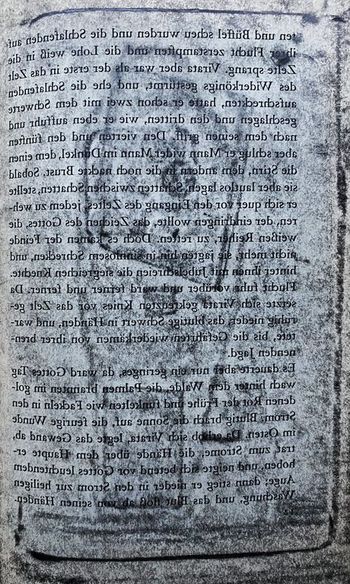 ten und Büffel scheu wurden und die Schlafenden auf
ihrer Flucht zerstampften und die Lohe weiß in die
Zelte sprang. Virata aber war als der erste in das Zelt
des Widerkönigs gestürmt, und ehe die Schlafenden
aufschreckten, hatte er schon zwei mit dem Schwert
geschlagen und den dritten, wie er eben auffuhr und
nach dem seinen griff. Den vierten und den fünften
aber schlug er Mann wider Mann im Dunkel, dem einen
die Stirn, dem andern in die noch nackte Brust. Sobald
sie aber lautlos lagen, Schatten zwischen Schatten, stellte
er sich quer vor den Eingang des Zeltes, jedem zu weh-
ren, der eindringen wollte, das Zeichen des Gottes, die
weißen Reiher, zu retten. Doch es kamen der Feinde
nicht mehr, sie jagten hin in sinnlosem Schrecken, und
hinter ihnen mit Jubelschreien die siegreichen Knechte.
Flucht fuhr vorüber und ward ferner und ferner. Da
setzte sich Virata gekreuzten Knies vor das Zelt ge-
ruhig nieder, das blutige Schwert in Händen, und war-
tete, bis die Gefährten wiederkämen von ihrer bren-
nenden Jagd.
Es dauerte aber nur ein geringes, da ward Gottes Tag
wach hinter dem Walde, die Palmen brannten im gol-
denen Rot der Frühe und funkelten wie Fackeln in den
Strom. Blutig brach die Sonne auf, die feurige Wunde
im Osten. Da erhob sich Virata, legte das Gewand ab,
trat zum Strome, die Hände über dem Haupte er-
hoben, und neigte sich betend vor Gottes leuchtendem
Auge; dann stieg er nieder in den Strom zur heiligen
Waschung, und das Blut floß ab von seinen Händen.